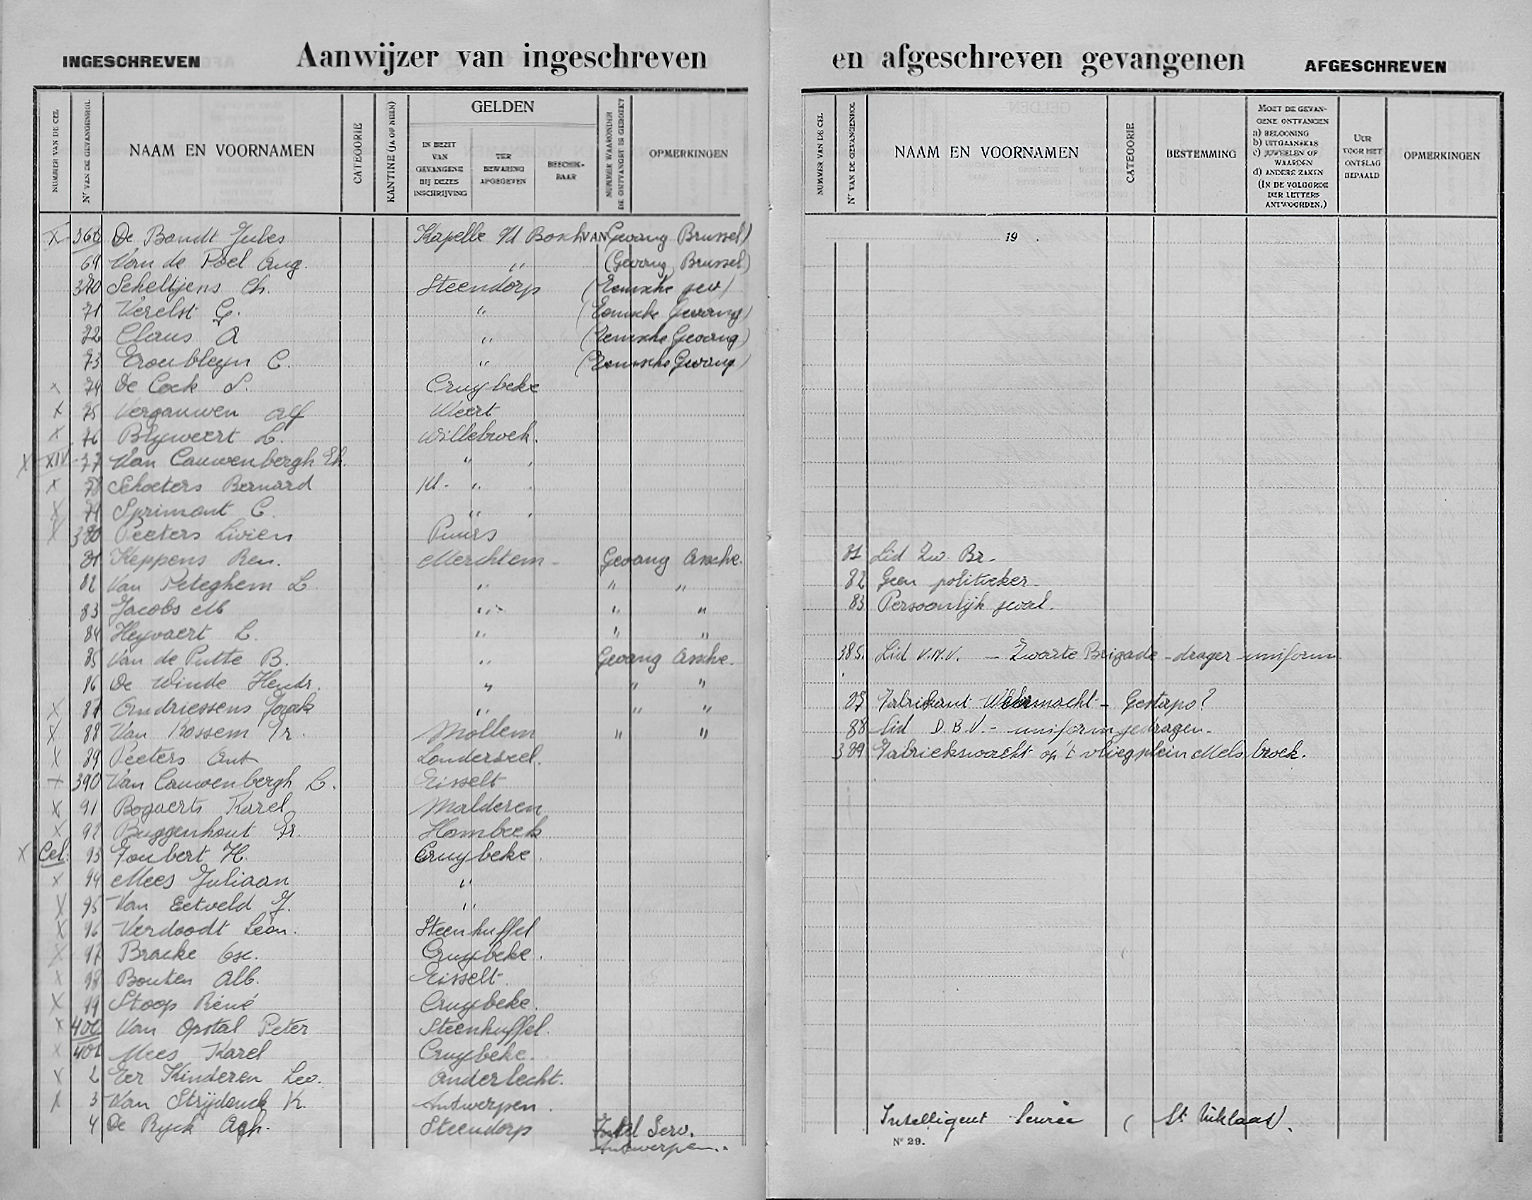 INGESCHREVEN Aanwijzer van ingeschreven en afgeschreven gevangenen AFGESCHREVEN
NUMMER VAN DE CEL
Nr VAN DE GEVANGENROL
NAAM EN VOORNAMEN
CATEGORIE
KANTINE (JA OF NEEN)
GELDEN
IN BEZIT VAN GEVANGENE BIJ DEZES INSCHRIJVING
TER BEWARING AFGEGEVEN
BESCHIKBAAR
NUMMER WAARONDER DE ONTVANGST IS GEBOEKT
OPMERKINGEN
X 368 De Bondt Jules Kapelle o/d Bosch VAN (Gevang Brussel)
69 Van de Poel Aug. " (Gevang Brussel)
370 Scheltjens Ch. Steendorp (Temsche gev)
71 Verelst G. " (Temsche Gevang)
72 Claus A " (Temsche Gevang)
73 Troubleyn C. " (Temsche Gevang)
x 74 De Cock S. Cruybeke
x 75 Vergauwen Alf Weert
x 76 Blyweert L. Willebroek.
X XIV 77 Van Cauwenbergh Th. "
x 78 Schoeters Bernard Kl. - "
x 79 Sprimont C. "
X 380 Peeters Livien Puurs
81 Keppens Ren. Merchtem - Gevang Assche.
82 Van Peteghem L " " "
83 Jacobs M " " "
84 Heyvaert L. " " "
85 Van de Putte B. " Gevang Assche.
86 De Winde Hendr. " " "
x 87 Andriessens Jozef " " "
x 88 Van Rossem Fr. Mollem " "
x 89 Peeters Ant Londerseel.
x 390 Van Cauwenbergh L. Tisselt
x 91 Bogaerts Karel Malderen
x 92 Buggenhout Fr. Hombeek
x Cel. 93 Foubert H. Cruybeke.
x 94 Mees Juliaan "
x 95 Van Eetveld J. "
x 96 Verdoodt Leon. Steenhuffel
x 97 Bracke Osc. Cruybeke.
x 98 Bouten Alb. Tisselt.
x 99 Stoop Réné Cruybeke.
x 400 Van Opstal Peter Steenhuffel.
x 401 Mees Karel Cruybeke.
x 2 Ter Kinderen Leo. Anderlecht.
x 3 Van Strijdonck K. Antwerpen.
4 De Ryck Ach. Steendorp Intel Serv. Antwerpen.
NUMMER VAN DE CEL
Nr VAN DE GEVANGENROL
NAAM EN VOORNAMEN
CATEGORIE
BESTEMMING
MOET DE GEVANGENE ONTVANGEN
a) BELOONING
b) UITGAANSKAS
c) JUWEELEN OF WAARDEN
d) ANDERE ZAKEN
(IN DE VOLGORDE DER LETTERS ANTWOORDEN.)
UUR VOOR HET ONTSLAG BEPAALD
OPMERKINGEN
19 .
81 Lid Zw. Br.
82 Geen politieker.
83 Persoonlijk geval.
385. Lid V.N.V. - Zwarte Brigade - drager uniform
87 Fabrikant Wehrmacht - Gestapo?
88 Lid D.B.V. - uniform gedragen.
389 Fabriekswacht op 't vliegplein Melsbroek.
Intelligent Service ( St Niklaas).
N° 29.